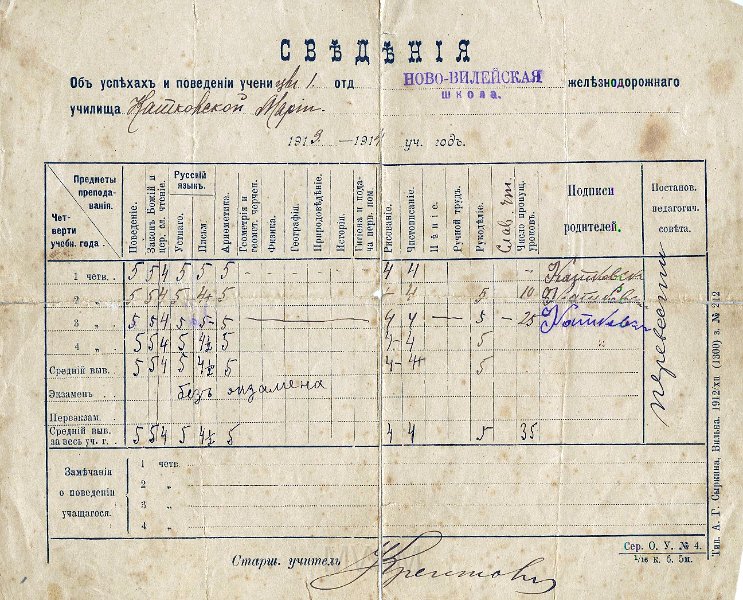 СВѢДѢНІЯ
Объ успѣхахъ и поведеніи учени цы 1. отд НОВО-ВИЛЕЙСКАЯ ШКОЛА. желѣзнодорожнаго
училища Кашковской Маріи
1913 —1914 уч. годъ.
Предметы преподаванія.
Четверти учебн. года.
Поведеніе.
Законъ Божій и цер. сл. чтеніе.
Русскій языкъ.
Устнаго.
Письм
Арифметика.
Геометрія и геомет. черчен.
Физика.
Географія.
Природовѣдѣніе.
Исторія.
Гигіена и подача перв. пом
Рисованіе.
Чистописаніе.
Пѣніе.
Ручной трудъ.
Рукодѣліе.
Слав. чт.
Число пропущ. уроковъ.
Подписи родителей.
Постанов. педагогич. совѣта.
1 четв. 5 5 4 5 5 5 - - - - - - 4 4 -
2 „ 5 5 4 5 4½ 5 - 4 5 10
3 „ 5 5 4 5 5- 5 4 4 — 5 - 25
4 „ 5 5 4 5 4½ 5 4 - 4 5
Средній выв. 5 5 4 5 4½ 5 4 - 4 5
Экзаменъ безъ экзамена
Переэкзам.
Средній выв. за весь уч. г. 5 5 4 5 4½ 5 4 4 5 35
перевести
Замѣчанія о поведеніи учащагося.
1 четв.
2 „
3 „
4 „
Старш. учитель
Сер. О. У. № 4.
1/16 к. б. 5м.
Тип. А. Г. Сыркина, Вильна. 1912/хіі (1300) з. № 212